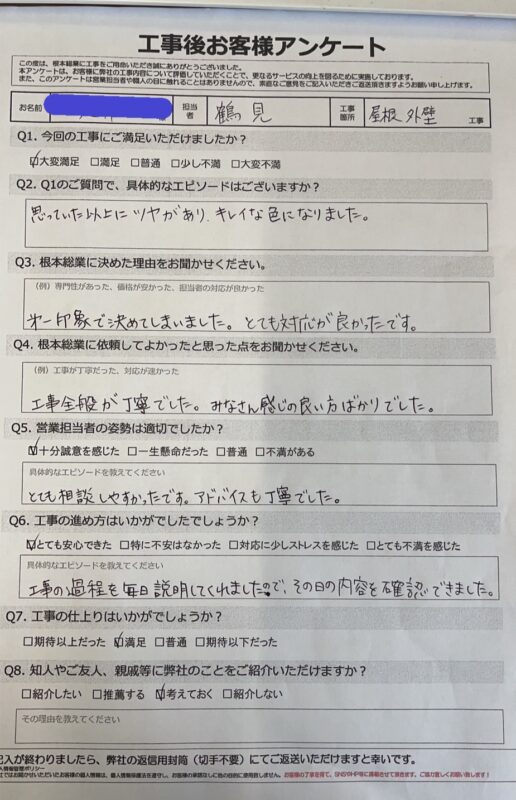 工事後お客様アンケート
この度は、根本総業に工事をご用命いただき誠にありがとうございました。
本アンケートは、お客様に弊社の工事内容について評価していただくことで、更なるサービスの向上を図るために実施しております。
また、このアンケートは営業担当者や職人の目に触れることはありませんので、素直なご意見をご記入いただきご返送頂きますようお願い申し上げます。
お名前 担当者 鶴見 工事箇所 屋根 外壁 工事
Q1. 今回の工事にご満足いただけましたか？
☑大変満足 □満足 □普通 □少し不満 □大変不満
Q2. Q1のご質問で、具体的なエピソードはございますか？
思っていた以上にツヤがあり、キレイな色になりました。
Q3. 根本総業に決めた理由をお聞かせください。
（例）専門性があった、価格が安かった、担当者の対応が良かった
第一印象で決めてしまいました。とても対応が良かったです。
Q4. 根本総業に依頼してよかったと思った点をお聞かせください。
（例）工事が丁寧だった、対応が速かった
工事全般が丁寧でした。みなさん感じの良い方ばかりでした。
Q5. 営業担当者の姿勢は適切でしたか？
☑十分誠意を感じた □一生懸命だった □普通 □不満がある
具体的なエピソードを教えてください
とても相談しやすかったです。アドバイスも丁寧でした。
Q6. 工事の進め方はいかがでしたでしょうか？
☑とても安心できた □特に不安はなかった □対応に少しストレスを感じた □とても不満を感じた
具体的なエピソードを教えてください
工事の過程を毎日説明してくれましたので、その日の内容を確認できました。
Q7. 工事の仕上りはいかがでしょうか？
□期待以上だった ☑満足 □普通 □期待以下だった
Q8. 知人やご友人、親戚等に弊社のことをご紹介いただけますか？
□紹介したい □推薦する ☑考えておく □紹介しない
その理由を教えてください
記入が終わりましたら、弊社の返信用封筒（切手不要）にてご返送いただけますと幸いです。
個人情報管理ポリシー
社ではお聞かせいただいたお客様の個人情報は、個人情報保護法を遵守し、お客様の承諾なしに他の目的に使用致しません。お客様の了承を得て、SNSやHP等に掲載させて頂きます。ご協力宜しくお願い致します！